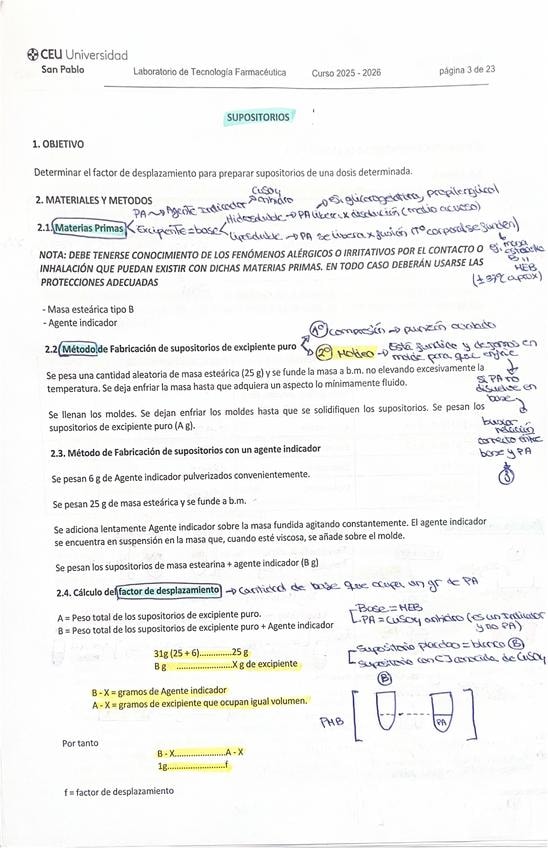 CEU Universidad
San Pablo
Laboratorio de Tecnología Farmacéutica Curso 2025 - 2026 página 3 de 23
SUPOSITORIOS
1. OBJETIVO
Determinar el factor de desplazamiento para preparar supositorios de una dosis determinada.
CuSO4
2. MATERIALES Y METODOS
PA → Agente Indicador anhidro
→ Si glicerogelatina, propilenglicol
Hidrosoluble → PA libera x disolución (medio acuoso)
2.1. Materias Primas Excipiente = base
Liposoluble → PA se libera x fusión (Tº corporal se funden)
NOTA: DEBE TENERSE CONOCIMIENTO DE LOS FENÓMENOS ALÉRGICOS O IRRITATIVOS POR EL CONTACTO O
INHALACIÓN QUE PUEDAN EXISTIR CON DICHAS MATERIAS PRIMAS. EN TODO CASO DEBERÁN USARSE LAS
PROTECCIONES ADECUADAS
masa
B
MEB
(±37ºC aprox)
- Masa esteárica tipo B
- Agente indicador
1º compresión → punzón
2.2 Método de Fabricación de supositorios de excipiente puro
2º Moldeo → Está fundida y
molde para que enfríe
Se pesa una cantidad aleatoria de masa esteárica (25 g) y se funde la masa a b.m. no elevando excesivamente la
temperatura. Se deja enfriar la masa hasta que adquiera un aspecto lo mínimamente fluido.
si PA no
disuelve en
base
Se llenan los moldes. Se dejan enfriar los moldes hasta que se solidifiquen los supositorios. Se pesan los
supositorios de excipiente puro (A g).
buscar
relación
correcta entre
base y PA
2.3. Método de Fabricación de supositorios con un agente indicador
Se pesan 6 g de Agente indicador pulverizados convenientemente.
Se pesan 25 g de masa esteárica y se funde a b.m.
Se adiciona lentamente Agente indicador sobre la masa fundida agitando constantemente. El agente indicador
se encuentra en suspensión en la masa que, cuando esté viscosa, se añade sobre el molde.
Se pesan los supositorios de masa estearina + agente indicador (B g)
2.4. Cálculo del factor de desplazamiento → Cantidad de base que ocupa un gr de PA
A = Peso total de los supositorios excipiente puro.
B = Peso total de los supositorios de excipiente puro + Agente indicador
Base = MEB
PA = CuSO4 anhidro (es un Indicador
y no PA)
31g (25 + 6).............25 g
B g ......................X g de excipiente
Supositorio placebo = blanco (B)
Supositorio con [ ] conocida de CuSO4
B - X = gramos de Agente indicador
A - X = gramos de excipiente que ocupan igual volumen.
B
PA
Por tanto
B - X......................A - X
1g.......................f
f = factor de desplazamiento